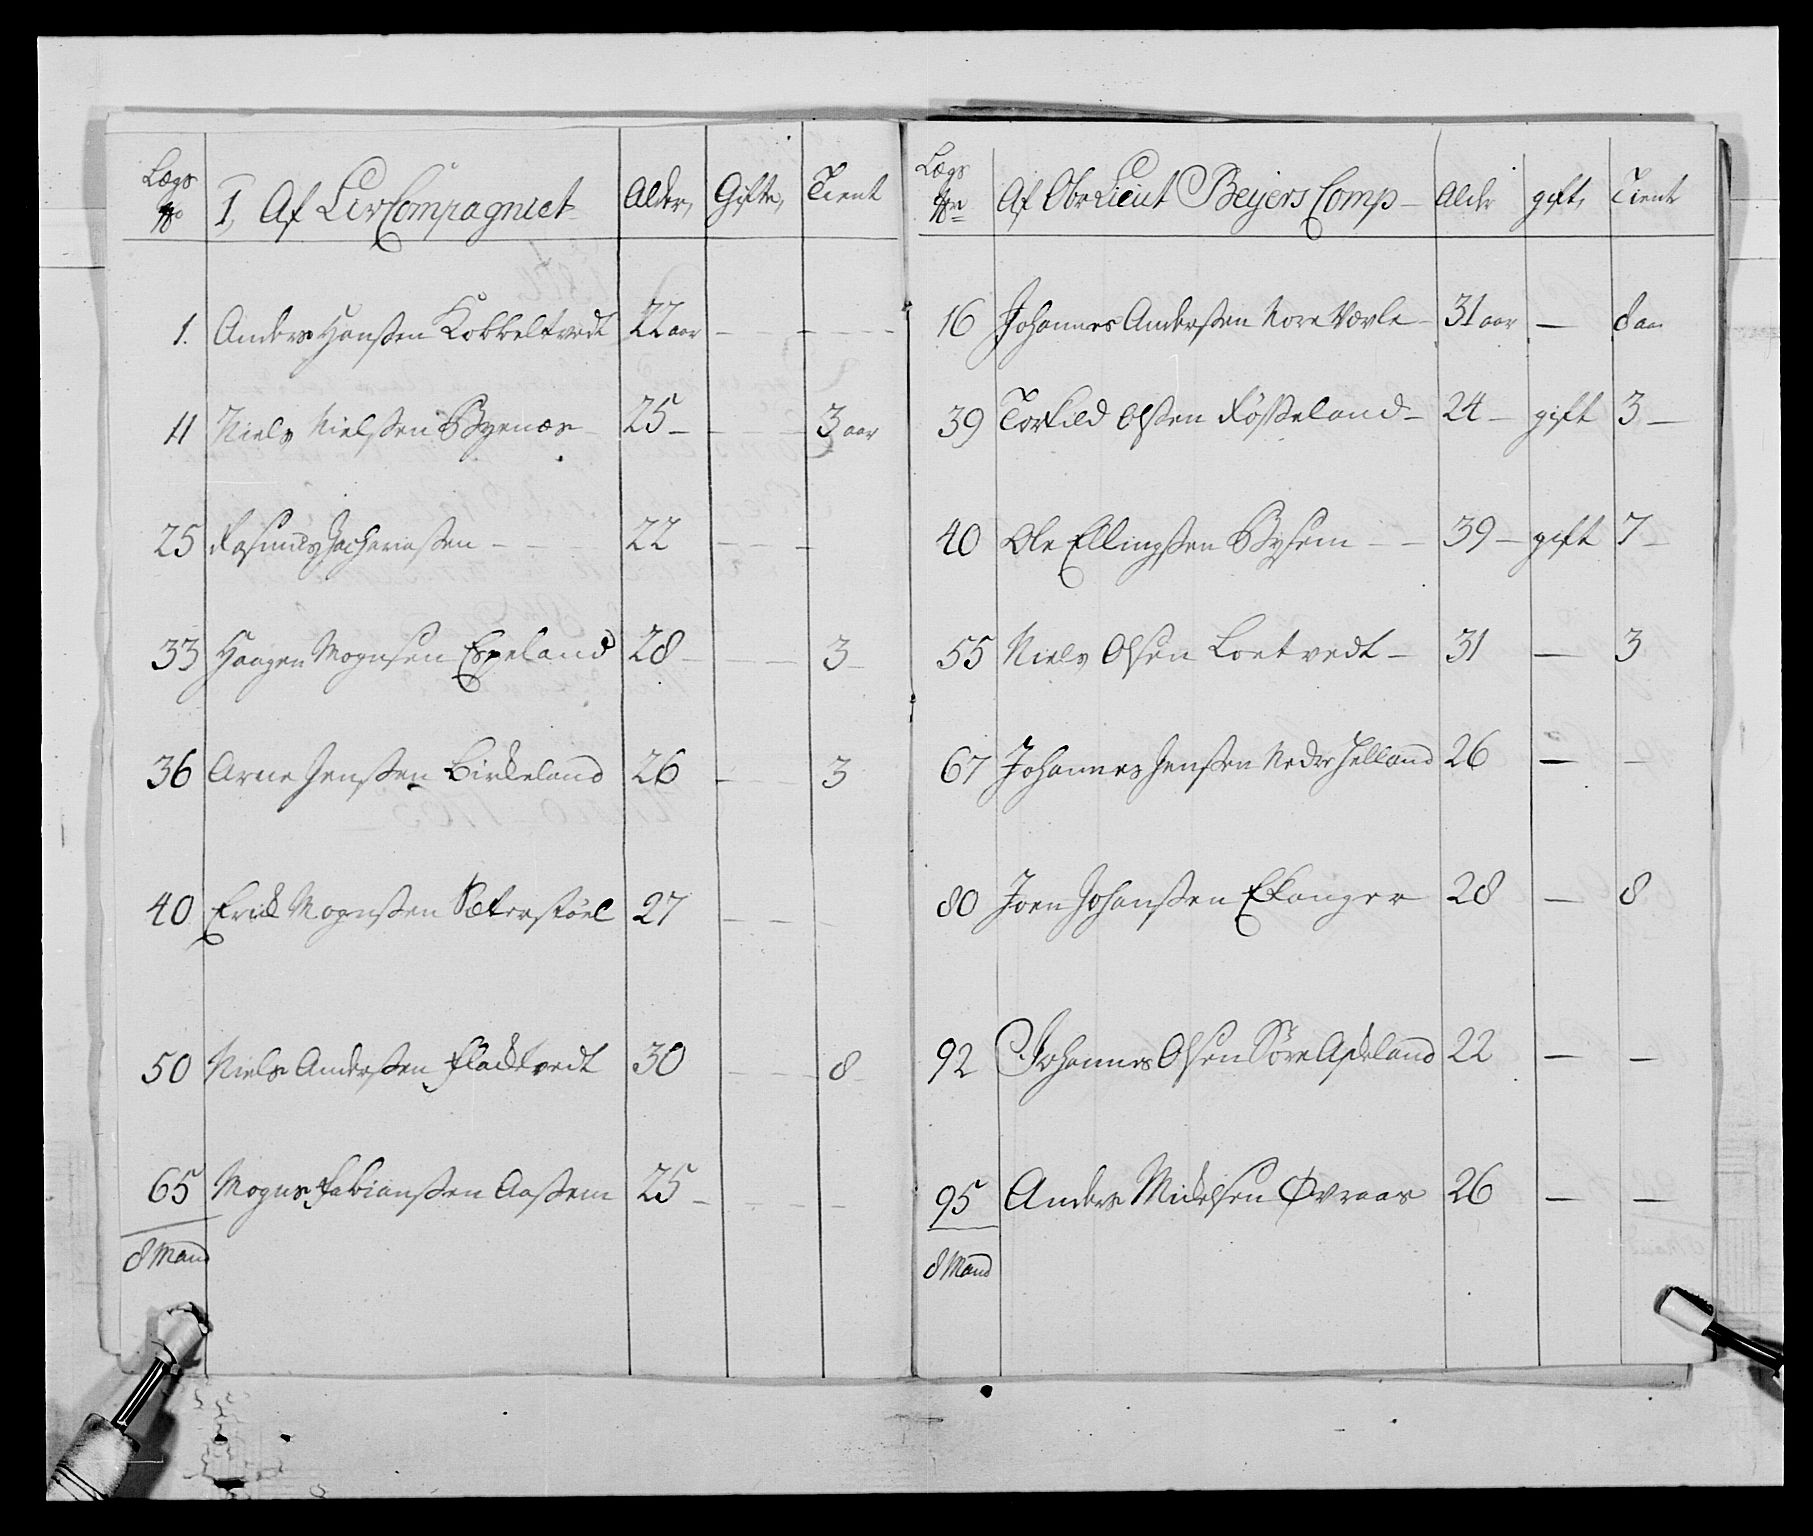 Lægs No | I, Af LivCompagniet | Alder, | Gifte, | Tient
1. | Anders Hanssen Kobbeltvedt | 22 aar | - | -
11 | Niels Nielssen Byenæs | 25 - | - | 3 aar
25 | Rasmus Zacheriassen - - | 22 | - - | -
33 | Haagen Mognsen Espeland | 28 - | - - | 3 -
36 | Arne Jenssen Birkeland | 26 | - - | 3
40 | Erick Mognssen Sæterstöel | 27 | - - | -
50 | Niels Anderssen Flacktvedt | 30 | - - | 8
65 | Mogns Fabianssen Aassem | 25 - | - - | -
8 Mand
Lægs No | Af Obr Lieut Beyers Comp - | Alder | gift, | Tient
16 | Johannes Anderssen Nore Værle - | 31 aar | - | 8 aa
39 | Torkild Olssen Røsseland - | 24 - | gift | 3 -
40 | Ole Ellingssen Bysem - - | 39 - | gift | 7 -
55 | Niels Olsen Loetvedt - | 31 | - | 3
67 | Johannes Jenssen Nedre Helland | 26 | - | -
80 | Joen Johanssen Ekanger | 28 | - | 8
92 | Johannes Olsen Søre Apeland | 22 | - | -
95 | Anders Mickelsen Øvraas | 26 | - | -
8 Mand